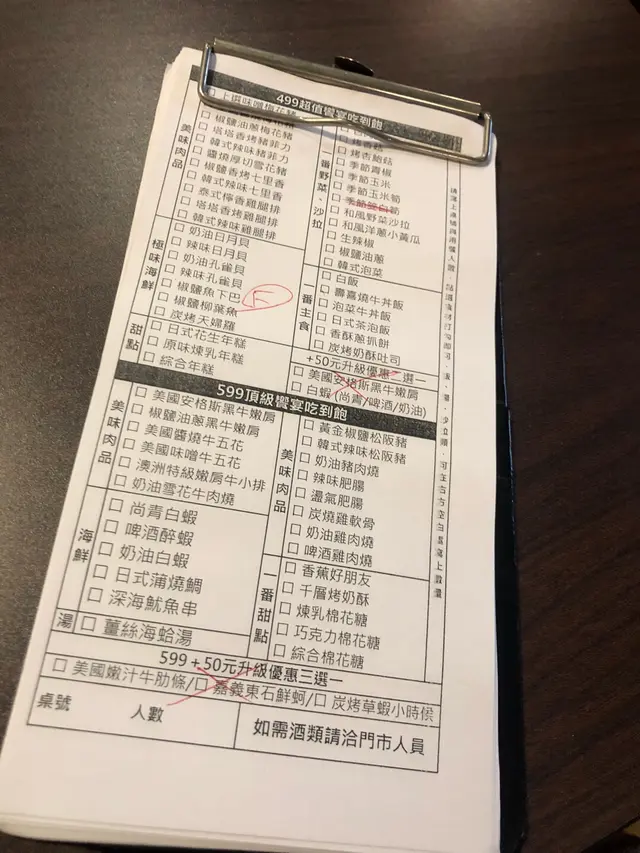 499超值饗宴吃到飽
美味肉品
椒鹽油蔥梅花豬
塔塔香烤豬菲力
韓式辣味豬菲力
醬燒厚切雪花豬
椒鹽香烤七里香
韓式辣味七里香
泰式檸香雞腿排
塔塔香烤雞腿排
韓式辣味雞腿排
極味海鮮
奶油日月貝
辣味日月貝
奶油孔雀貝
辣味孔雀貝
椒鹽魚下巴
椒鹽柳葉魚
炭烤天婦羅
甜點
日式花生年糕
原味煉乳年糕
綜合年糕
一番野菜、沙拉
烤杏鮑菇
季節青椒
季節玉米
季節玉米筍
季節茭白筍
和風野菜沙拉
和風洋蔥小黃瓜
生辣椒
椒鹽油蔥
韓式泡菜
一番主食
白飯
壽喜燒牛丼飯
泡菜牛丼飯
日式茶泡飯
香酥蔥抓餅
炭烤奶酥吐司
+50元升級優惠二選一
美國安格斯黑牛嫩肩
白蝦(尚青/啤酒/奶油)
599頂級饗宴吃到飽
美味肉品
美國安格斯黑牛嫩肩
椒鹽油蔥黑牛嫩肩
美國醬燒牛五花
美國味噌牛五花
澳洲特級嫩肩牛小排
奶油雪花牛肉燒
海鮮
尚青白蝦
啤酒醉蝦
奶油白蝦
日式蒲燒鯛
深海魷魚串
湯
薑絲海蛤湯
美味肉品
黃金椒鹽松阪豬
韓式辣味松阪豬
奶油豬肉燒
辣味肥腸
盪氣肥腸
炭燒雞軟骨
奶油雞肉燒
啤酒雞肉燒
一番甜點
香蕉好朋友
千層烤奶酥
煉乳棉花糖
巧克力棉花糖
綜合棉花糖
599+50元升級優惠三選一
美國嫩汁牛肋條/口 嘉義東石鮮蚵/口 炭烤草蝦小時候
桌號 人數 如需酒類請洽門市人員